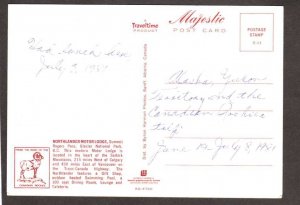 Travel time
PRODUCT
Majestic
POST CARD
POSTAGE
STAMP
July 3, 1981
Alaska, Yukon
Territory and the
Canadian Rockies
Trip
June 19 July 8 1981
NORTHLANDER MOTOR LODGE, Summit
Rogers Pass, Glacier National Park,
B.C. This modern Motor Lodge is
located in the heart of the Selkirk
Mountains, 215 miles West of Calgary
and 430 miles East of Vancouver on
the Trans-Canada Highway. The
Northlander features a Gift Shop,
outside heated Swimming Pool, a
200 seat Dining Room, Lounge and
Cafeteria.
Dist. by Byron Harmon Photos, Banff, Alberta, Canada